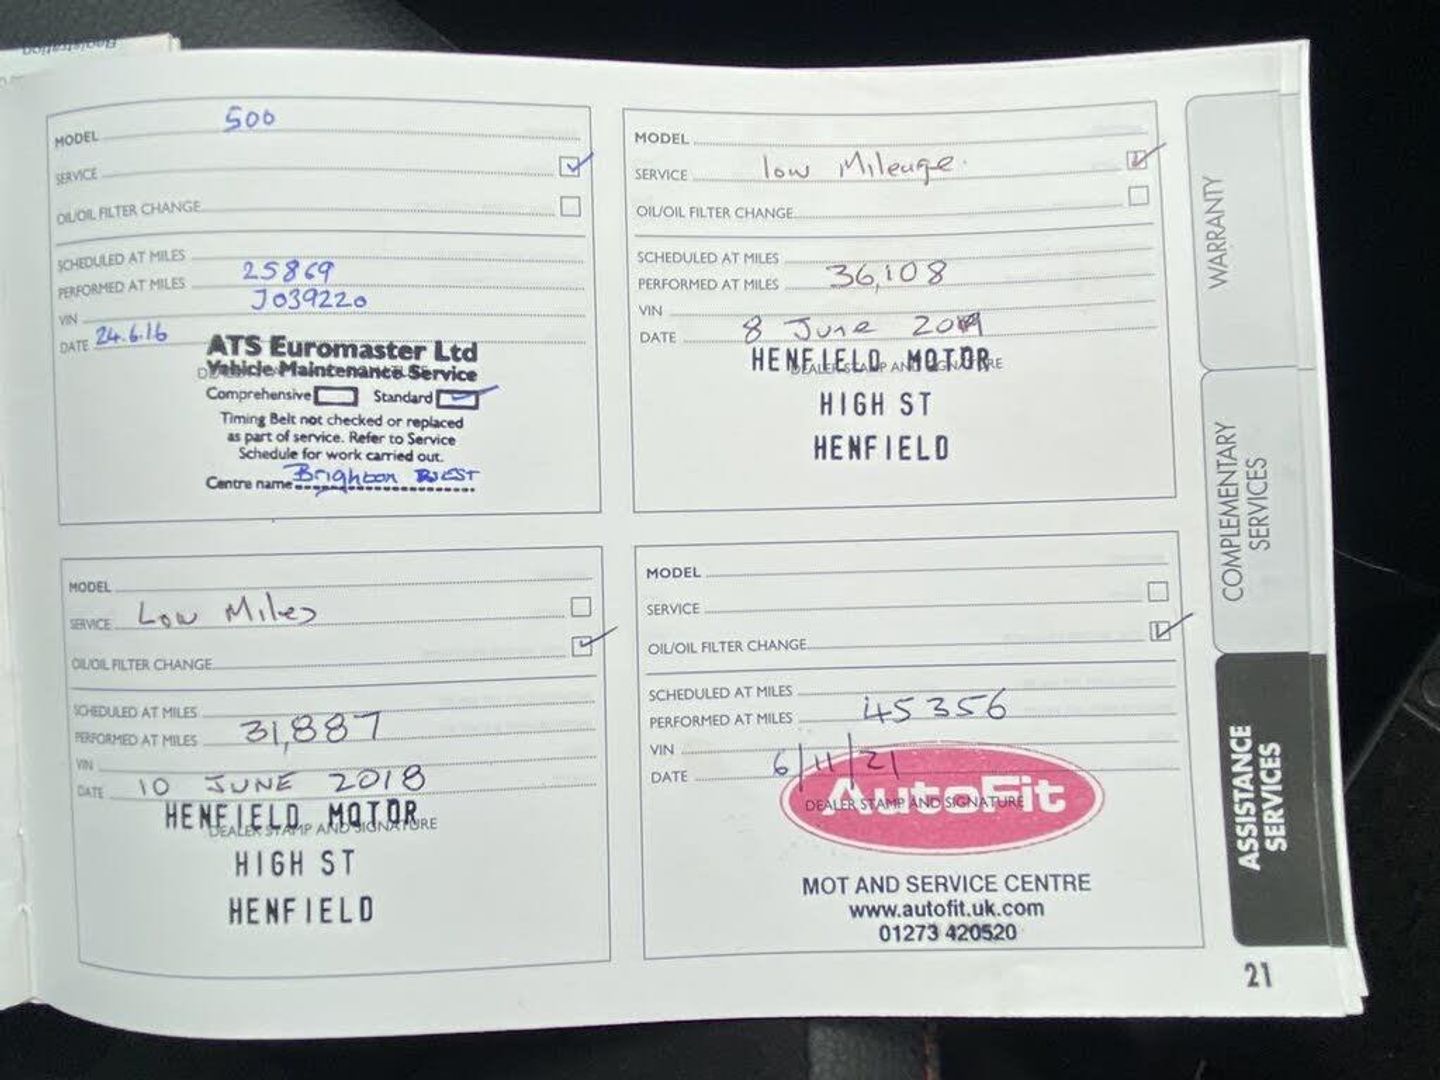 Registration
MODEL 500
SERVICE
OIL/OIL FILTER CHANGE
SCHEDULED AT MILES
PERFORMED AT MILES 25869
VIN J039220
DATE 24.6.16
ATS Euromaster Ltd
Vehicle Maintenance Service
Comprehensive Standard
Timing Belt not checked or replaced
as part of service. Refer to Service
Schedule for work carried out.
Centre name Brighton WEST
MODEL
SERVICE low Mileage
OIL/OIL FILTER CHANGE
SCHEDULED AT MILES
PERFORMED AT MILES 36,108
VIN
DATE 8 June 2019
DEALER STAMP AND SIGNATURE
HENFIELD MOTOR
HIGH ST
HENFIELD
MODEL
SERVICE Low Miles
OIL/OIL FILTER CHANGE
SCHEDULED AT MILES
PERFORMED AT MILES 31,887
VIN
DATE 10 JUNE 2018
DEALER STAMP AND SIGNATURE
HENFIELD MOTOR
HIGH ST
HENFIELD
MODEL
SERVICE
OIL/OIL FILTER CHANGE
SCHEDULED AT MILES
PERFORMED AT MILES 45356
VIN
DATE 6/11/21
DEALER STAMP AND SIGNATURE
AutoFit
MOT AND SERVICE CENTRE
www.autofit.uk.com
01273 420520
WARRANTY
COMPLEMENTARY
SERVICES
ASSISTANCE
SERVICES
21